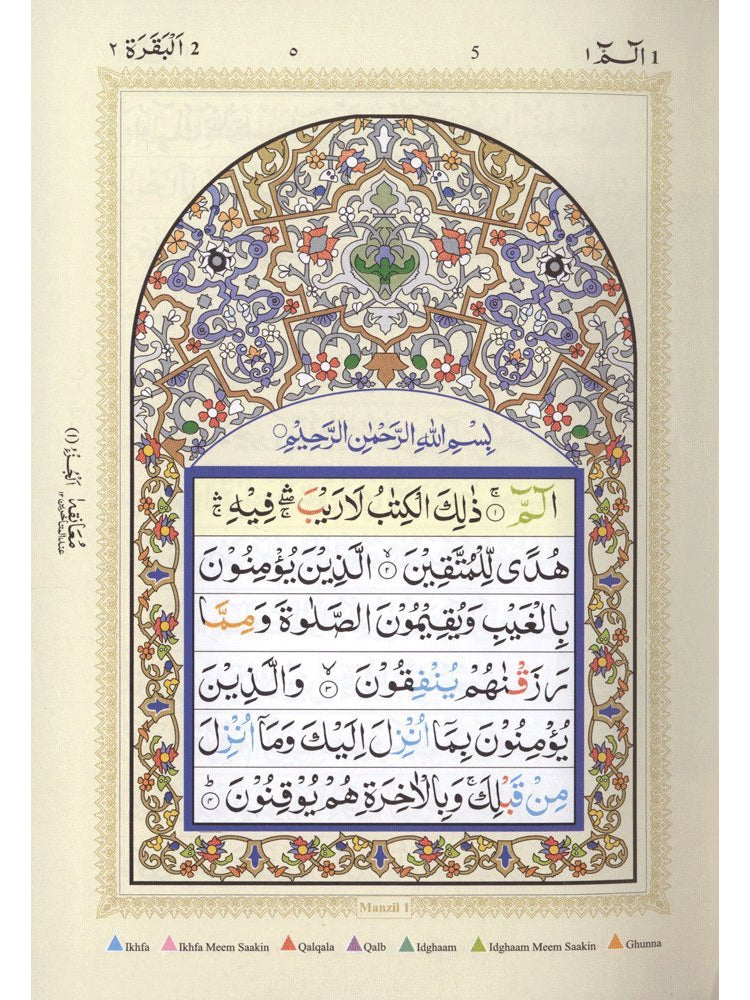 1 الٓـمّٓ ١ 5 ٥ 2 اَلْبَقَرَة ٢
بِسْمِ اللهِ الرَّحْمٰنِ الرَّحِيْمِ
الٓـمّٓ ۚ ١ ذٰلِكَ الْكِتٰبُ لَا رَيْبَ ۛۖ فِيْهِ ۛۚ
هُدًى لِّلْمُتَّقِيْنَ ۙ ٢ الَّذِيْنَ يُؤْمِنُوْنَ
بِالْغَيْبِ وَيُقِيْمُوْنَ الصَّلٰوةَ وَمِمَّا
رَزَقْنٰهُمْ يُنْفِقُوْنَ ۙ ٣ وَالَّذِيْنَ
يُؤْمِنُوْنَ بِمَاۤ اُنْزِلَ اِلَيْكَ وَمَاۤ اُنْزِلَ
مِنْ قَبْلِكَ ۚ وَبِالْاٰخِرَةِ هُمْ يُوْقِنُوْنَ ؕ ٤
الْجُزْءُ (١)
مُعَانَقَة ١
عند المتأخرين ١٢
Manzil 1
Ikhfa Ikhfa Meem Saakin Qalqala Qalb Idghaam Idghaam Meem Saakin Ghunna